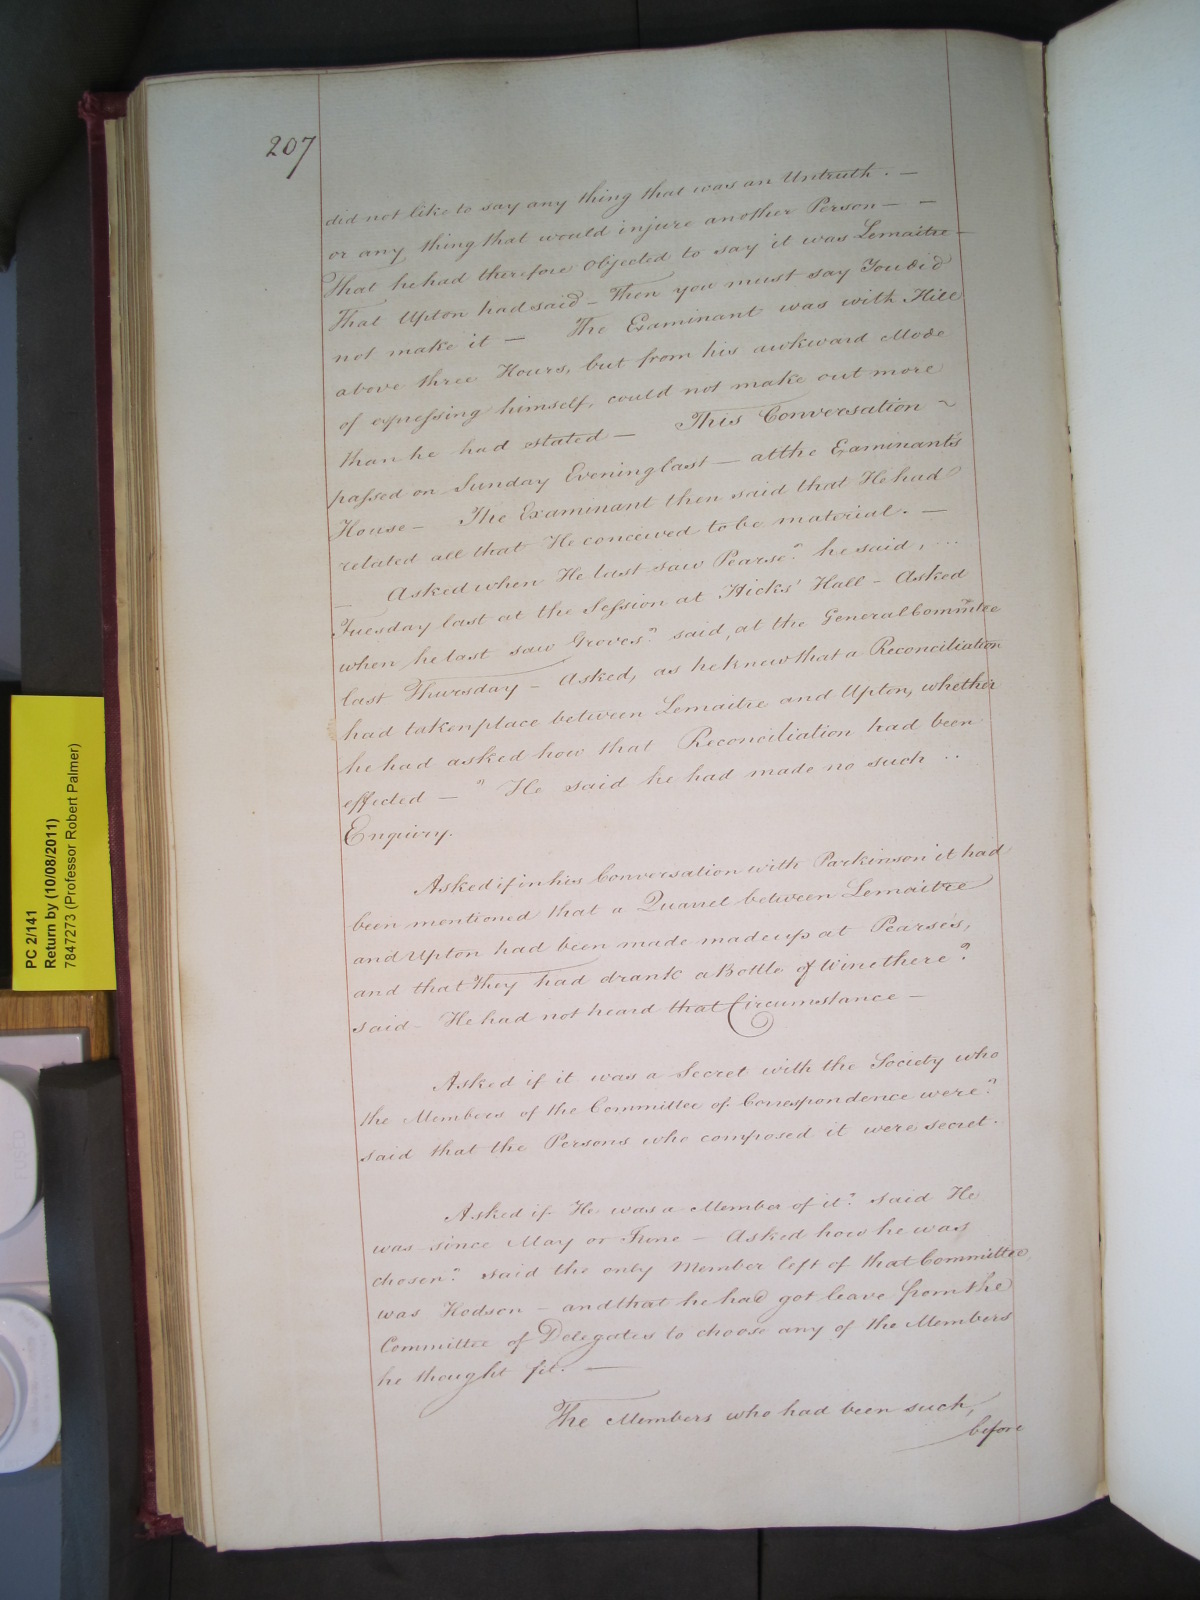 207
did not like to say any thing that was an Untruth. —
or any thing that would injure another Person — —
That he had therefore Objected to say it was Lemaitre —
That Upton had said — Then you must say You did
not make it — The Examinant was with Hill
above three Hours, but from his awkward Mode
of expressing himself, could not make out more
than he had stated — This Conversation ~
passed on Sunday Evening last — at the Examinant's
House — The Examinant then said that He had
related all that He conceived to be material. —
— Asked when He last saw Pearse? he said, ...
Tuesday last at the Session at Hicks' Hall — Asked
when he last saw Groves? said, at the General Committee
last Thursday — Asked, as he knew that a Reconciliation
had taken place between Lemaitre and Upton, whether
he had asked how that Reconciliation had been
effected — ? He said he had made no such ..
Enquiry.
Asked if in his Conversation with Parkinson it had
been mentioned that a Quarrel between Lemaitre
and Upton had been made made up at Pearse's,
and that They had drank a Bottle of Wine there?
said — He had not heard that Circumstance —
Asked if it was a Secret with the Society who
the Members of the Committee of Correspondence were?
said that the Persons who composed it were secret.
Asked if He was a Member of it? said He
was since May or June — Asked how he was
chosen? said the only Member left of that Committee,
was Hodson — and that he had got leave from the
Committee of Delegates to choose any of the Members
he thought fit. —
The Members who had been such,
before
PC 2/141
Return by (10/08/2011)
7847273 (Professor Robert Palmer)